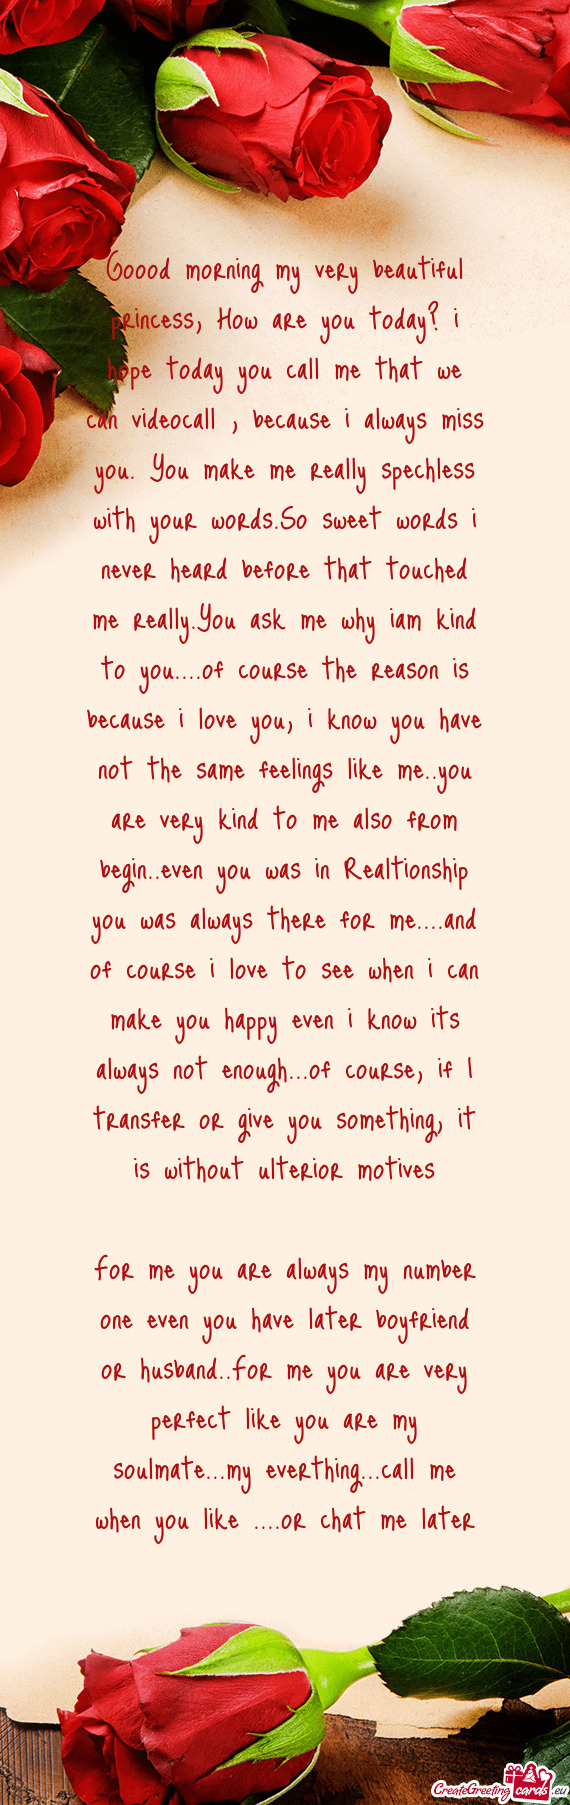 Goood morning my very beautiful
princess, How are you today? i
hope today you call me that we
can videocall , because i always miss
you. You make me really spechless
with your words.So sweet words i
never heard before that touched
me really.You ask me why iam kind
to you....of course the reason is
because i love you, i know you have
not the same feelings like me..you
are very kind to me also from
begin..even you was in Realtionship
you was always there for me....and
of course i love to see when i can
make you happy even i know its
always not enough...of course, if I
transfer or give you something, it
is without ulterior motives
for me you are always my number
one even you have later boyfriend
or husband..for me you are very
perfect like you are my
soulmate...my everthing...call me
when you like ....or chat me later
CreateGreeting cards .eu